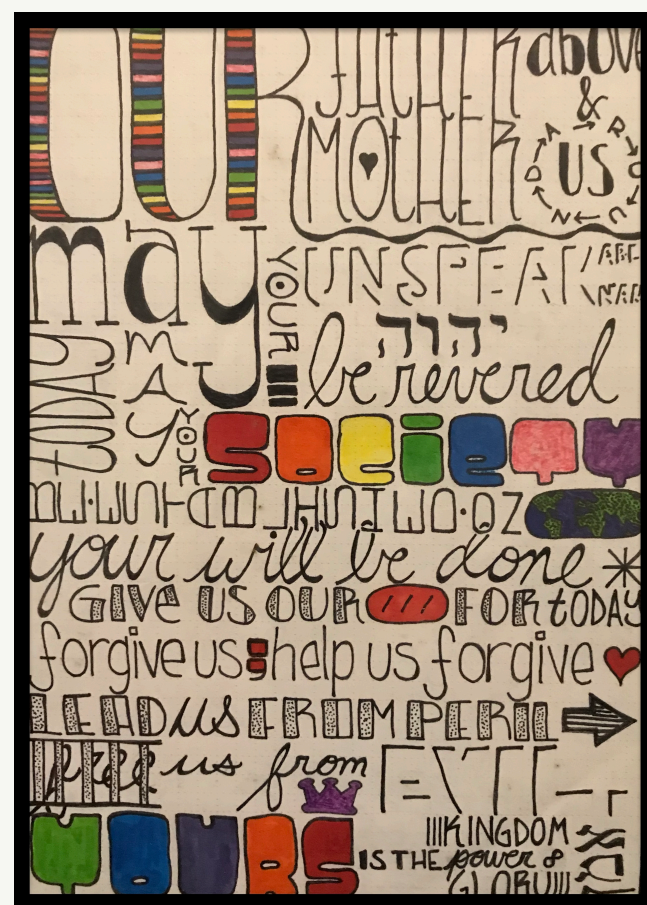 OUR FATHER above
& MOTHER AROUND US
may YOUR UNSPEA
יהוה
be revered
tODAY MAY YOUR SocieTY
your will be done
GIVE US OUR FOR tODAY
forgive us help us forgive
LEAD us FROM PERIL
free us from EVIL
YOURS IS THE KINGDOM
power &
GLORY